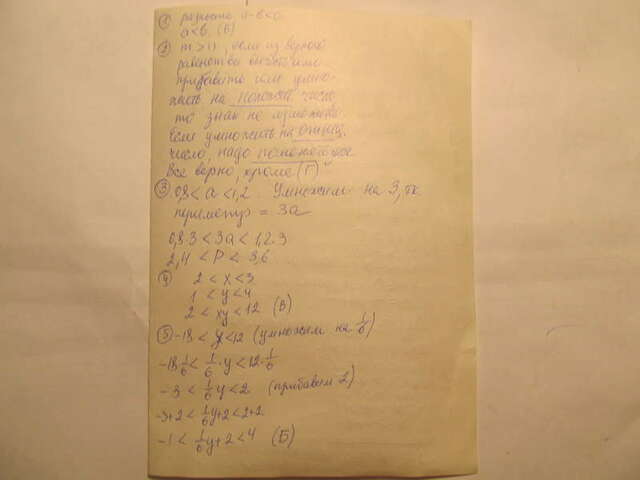 ① разность a-b<0
a<b. (Б)
② m > n, если из верного
равенства вычесть или
прибавить или умно-
жить на положит. число
то знак не
Если умножить на отриц.
число, надо
Все верно, кроме (Г)
③ 0,8 < a < 1,2. Умножим на 3, тк
периметр = 3a
0,8·3 < 3a < 1,2·3
2,4 < P < 3,6
④ 2 < x < 3
1 < y < 4
2 < xy < 12 (В)
⑤ -18 < y < 12 (умножим на 1/6)
-18·1/6 < 1/6·y < 12·1/6
-3 < 1/6y < 2 (прибавим 2)
-3+2 < 1/6y+2 < 2+2
-1 < 1/6y+2 < 4 (Б)